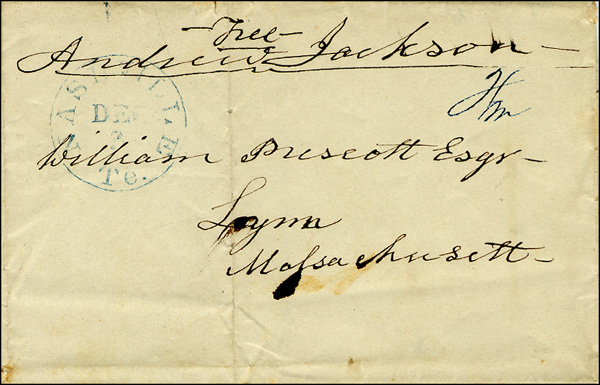 -Free-
Andrew Jackson-
NASHVILLE
DEC
Te.
William Prescott Esqr-
Lynn
Massachusett-